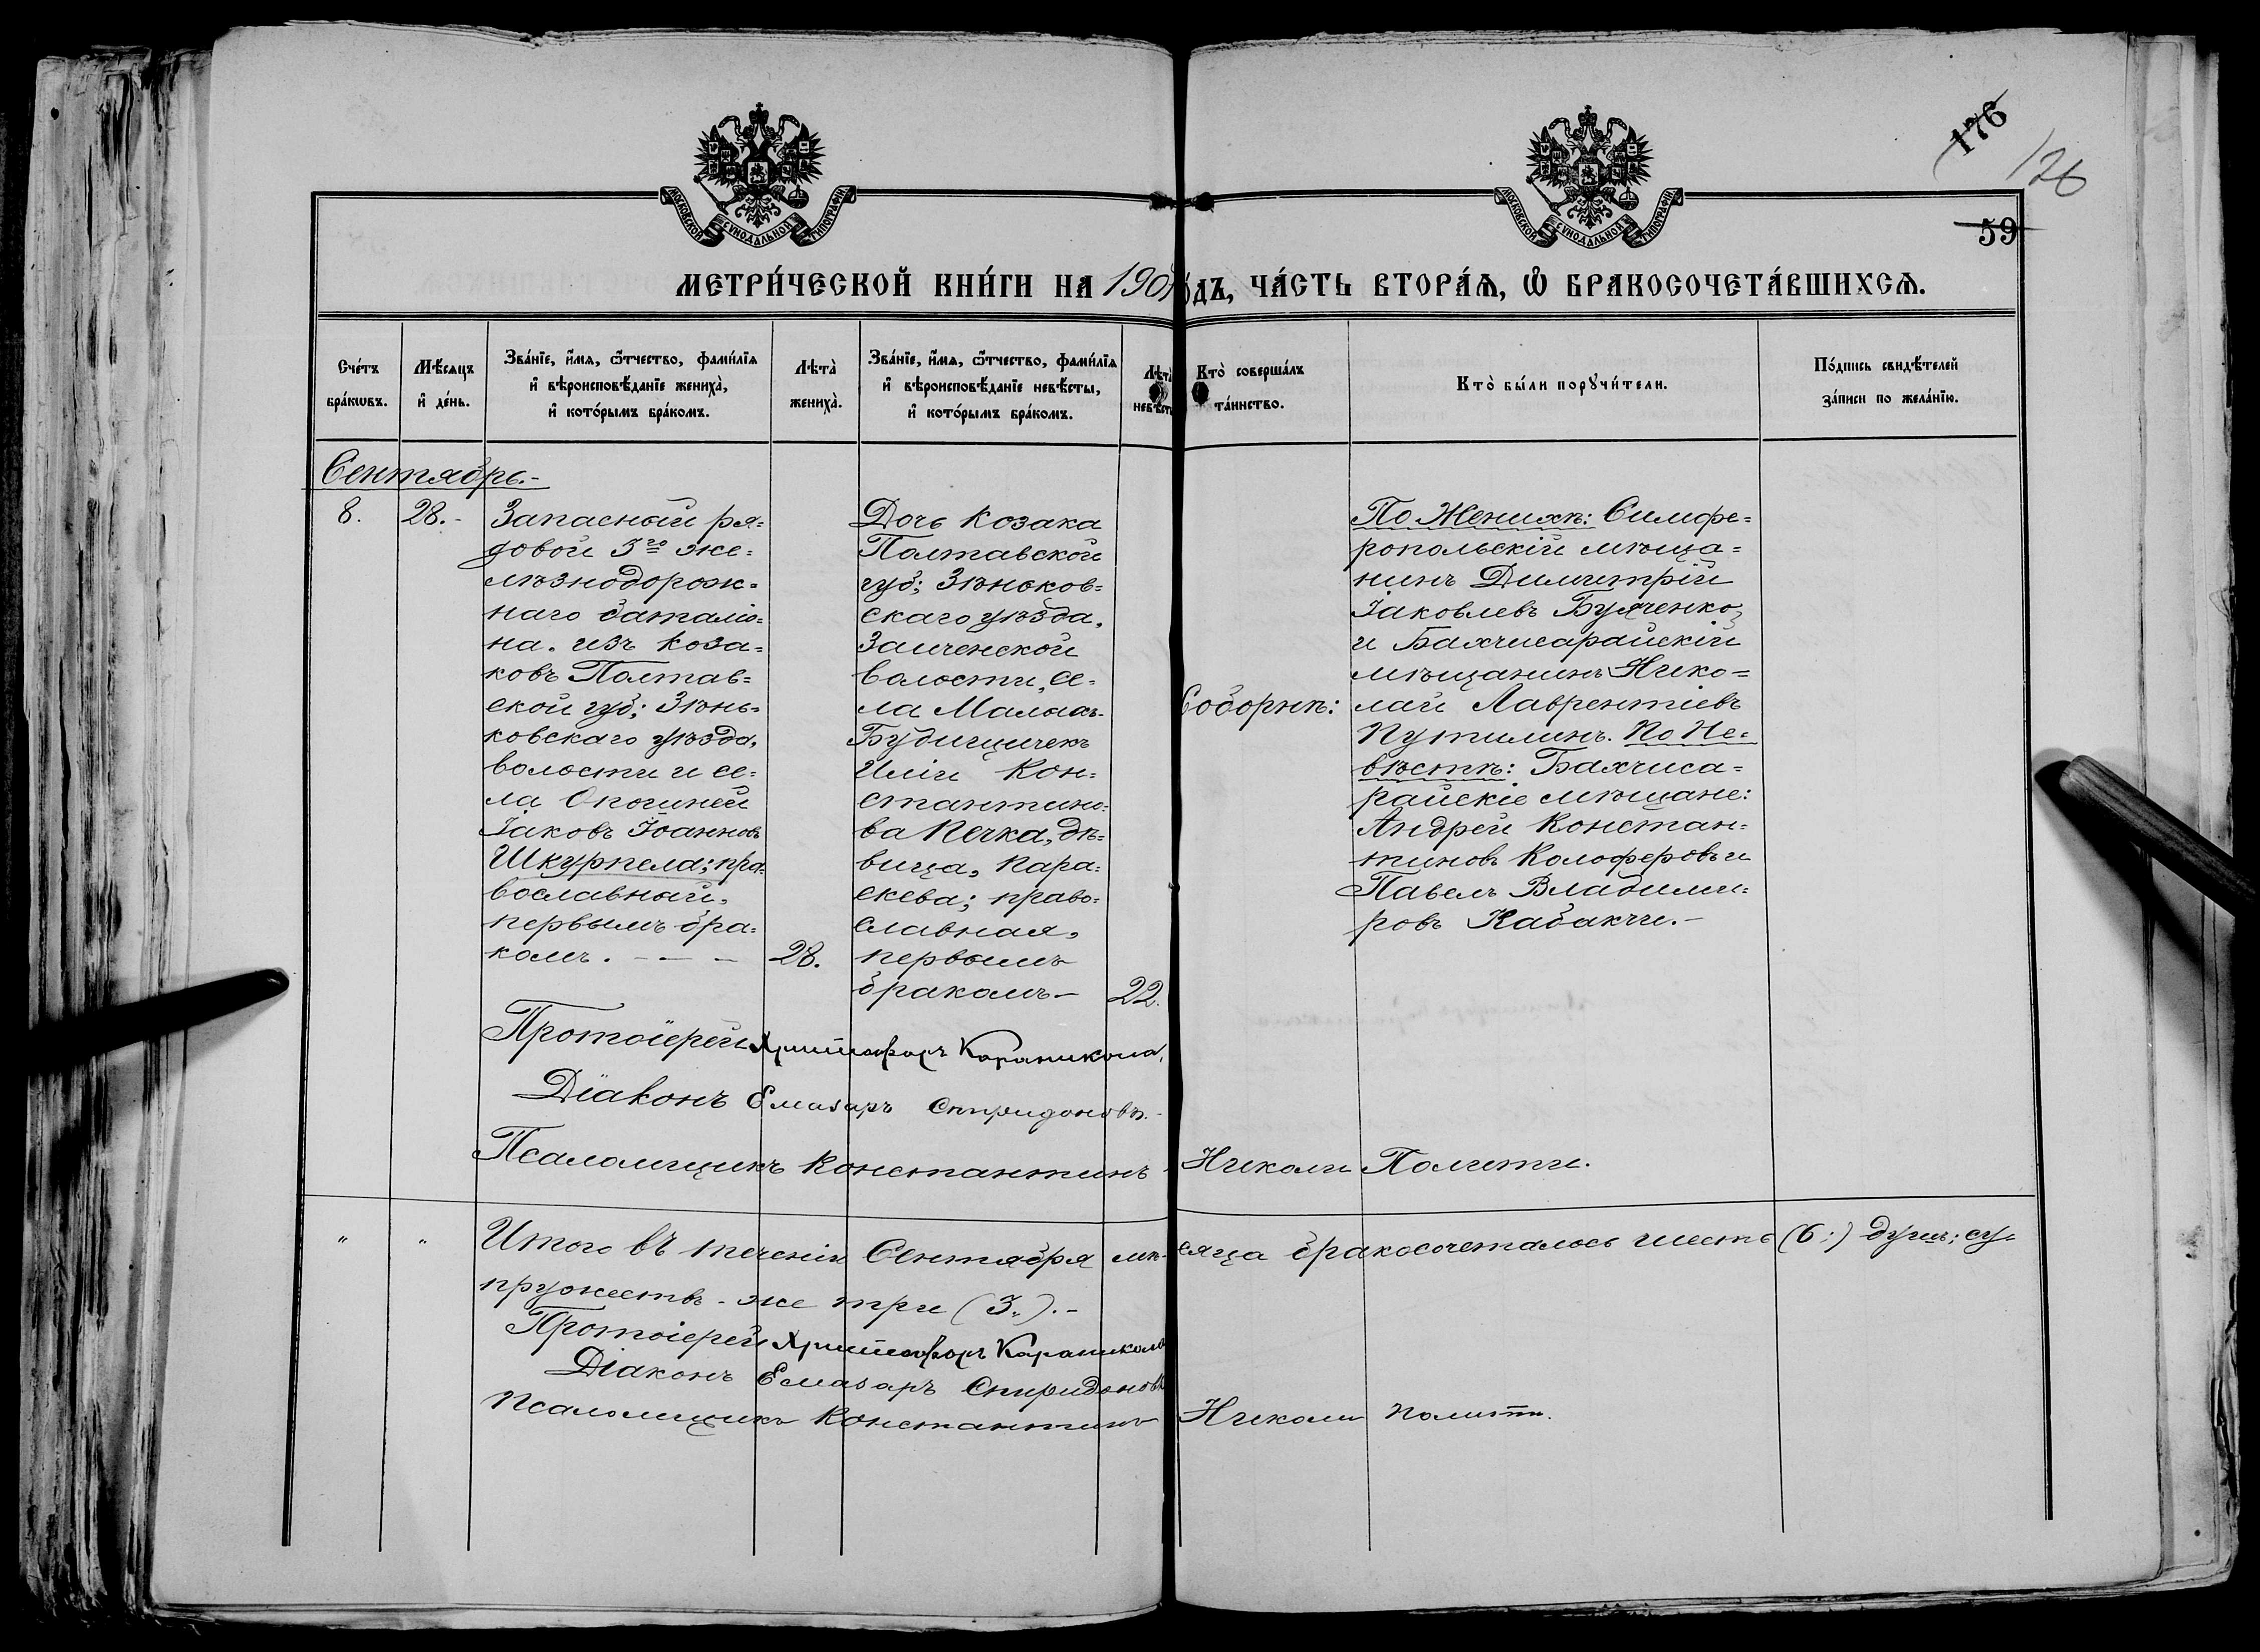 176
126
59
МОСКОВСКОЙ СѴНОДАЛЬНОЙ ТИПОГРАФІИ
МОСКОВСКОЙ СѴНОДАЛЬНОЙ ТИПОГРАФІИ
МЕТРИ́ЧЕСКОЙ КНИ́ГИ НА 190 ѻ́ДЪ, ЧА́СТЬ ВТОРА́Ѧ, Ѽ БРАКОСОЧЕТА́ВШИХСѦ.
Сче́тъ бра́кѡвъ.
Мѣ́сяцъ и҆ де́нь.
Зва́нїе, и҆́мя, ѻ҆́тчество, фамн́лїя
и҆ вѣроисповѣ́данїе жениха̀,
и҆ кото́рымъ бра́комъ.
Лѣта̀ жениха̀.
Зва́нїе, и҆́мя, ѻ҆́тчество, фами́лїя
и҆ вѣроисповѣ́данїе невѣ́сты,
и҆ кото́рымъ бра́комъ.
Лѣта̀ невѣ́сты
Кто̀ соверша́лъ та́инство.
Кто̀ бы́ли порꙋчи́тели.
По́дпись свидѣ́телей за́писи по жела́нїю.
Сентябрь.-
8. 28.-
Запасный ря=
довой 3го же=
лѣзнодорож=
наго баталіо=
на. изъ коза=
ковъ Полтав=
ской губ; Зѣнь=
ковскаго уѣзда,
волости и се=
ла Опошней
Іаковъ Іоанновъ
Шкурпела; пра=
вославный,
первымъ бра=
комъ. - - - 28.
Дочь козака
Полтавской
губ; Зѣньков=
скаго уѣзда,
Заиченской
волости, се=
ла Малыхъ-
Будищичекъ
Иліи Кон=
стантино=
ва Печка, дѣ=
вица, Пара=
скева; право=
славная,
первымъ
бракомъ- 22.
Соборнѣ:
По Женихѣ: Симфе=
ропольскій мѣща=
нинъ Димитрій
Іаковлевъ Буяченко,
и Бахчисарайскій
мѣщанинъ Нико=
лай Лаврентіевъ
Путилинъ. По Не=
вѣстѣ: Бахчиса=
райскіе мѣщане:
Андрей Констан=
тиновъ Колоферовъ и
Павелъ Владими=
ровъ Кабакчи.-
Протоіерей Христофоръ Караникола,
Діаконъ Елеазаръ Спиридоновъ.-
Псаломщикъ Константинъ Николи Полити.
" " Итого въ теченіи Сентября мѣсяца бракосочеталось шесть (6:) душъ; су=
пружествъ-же три (3.).-
Протоіерей Христофоръ Караникола
Діаконъ Елеазаръ Спиридоновъ
Псаломщикъ Константинъ Николи Полити.